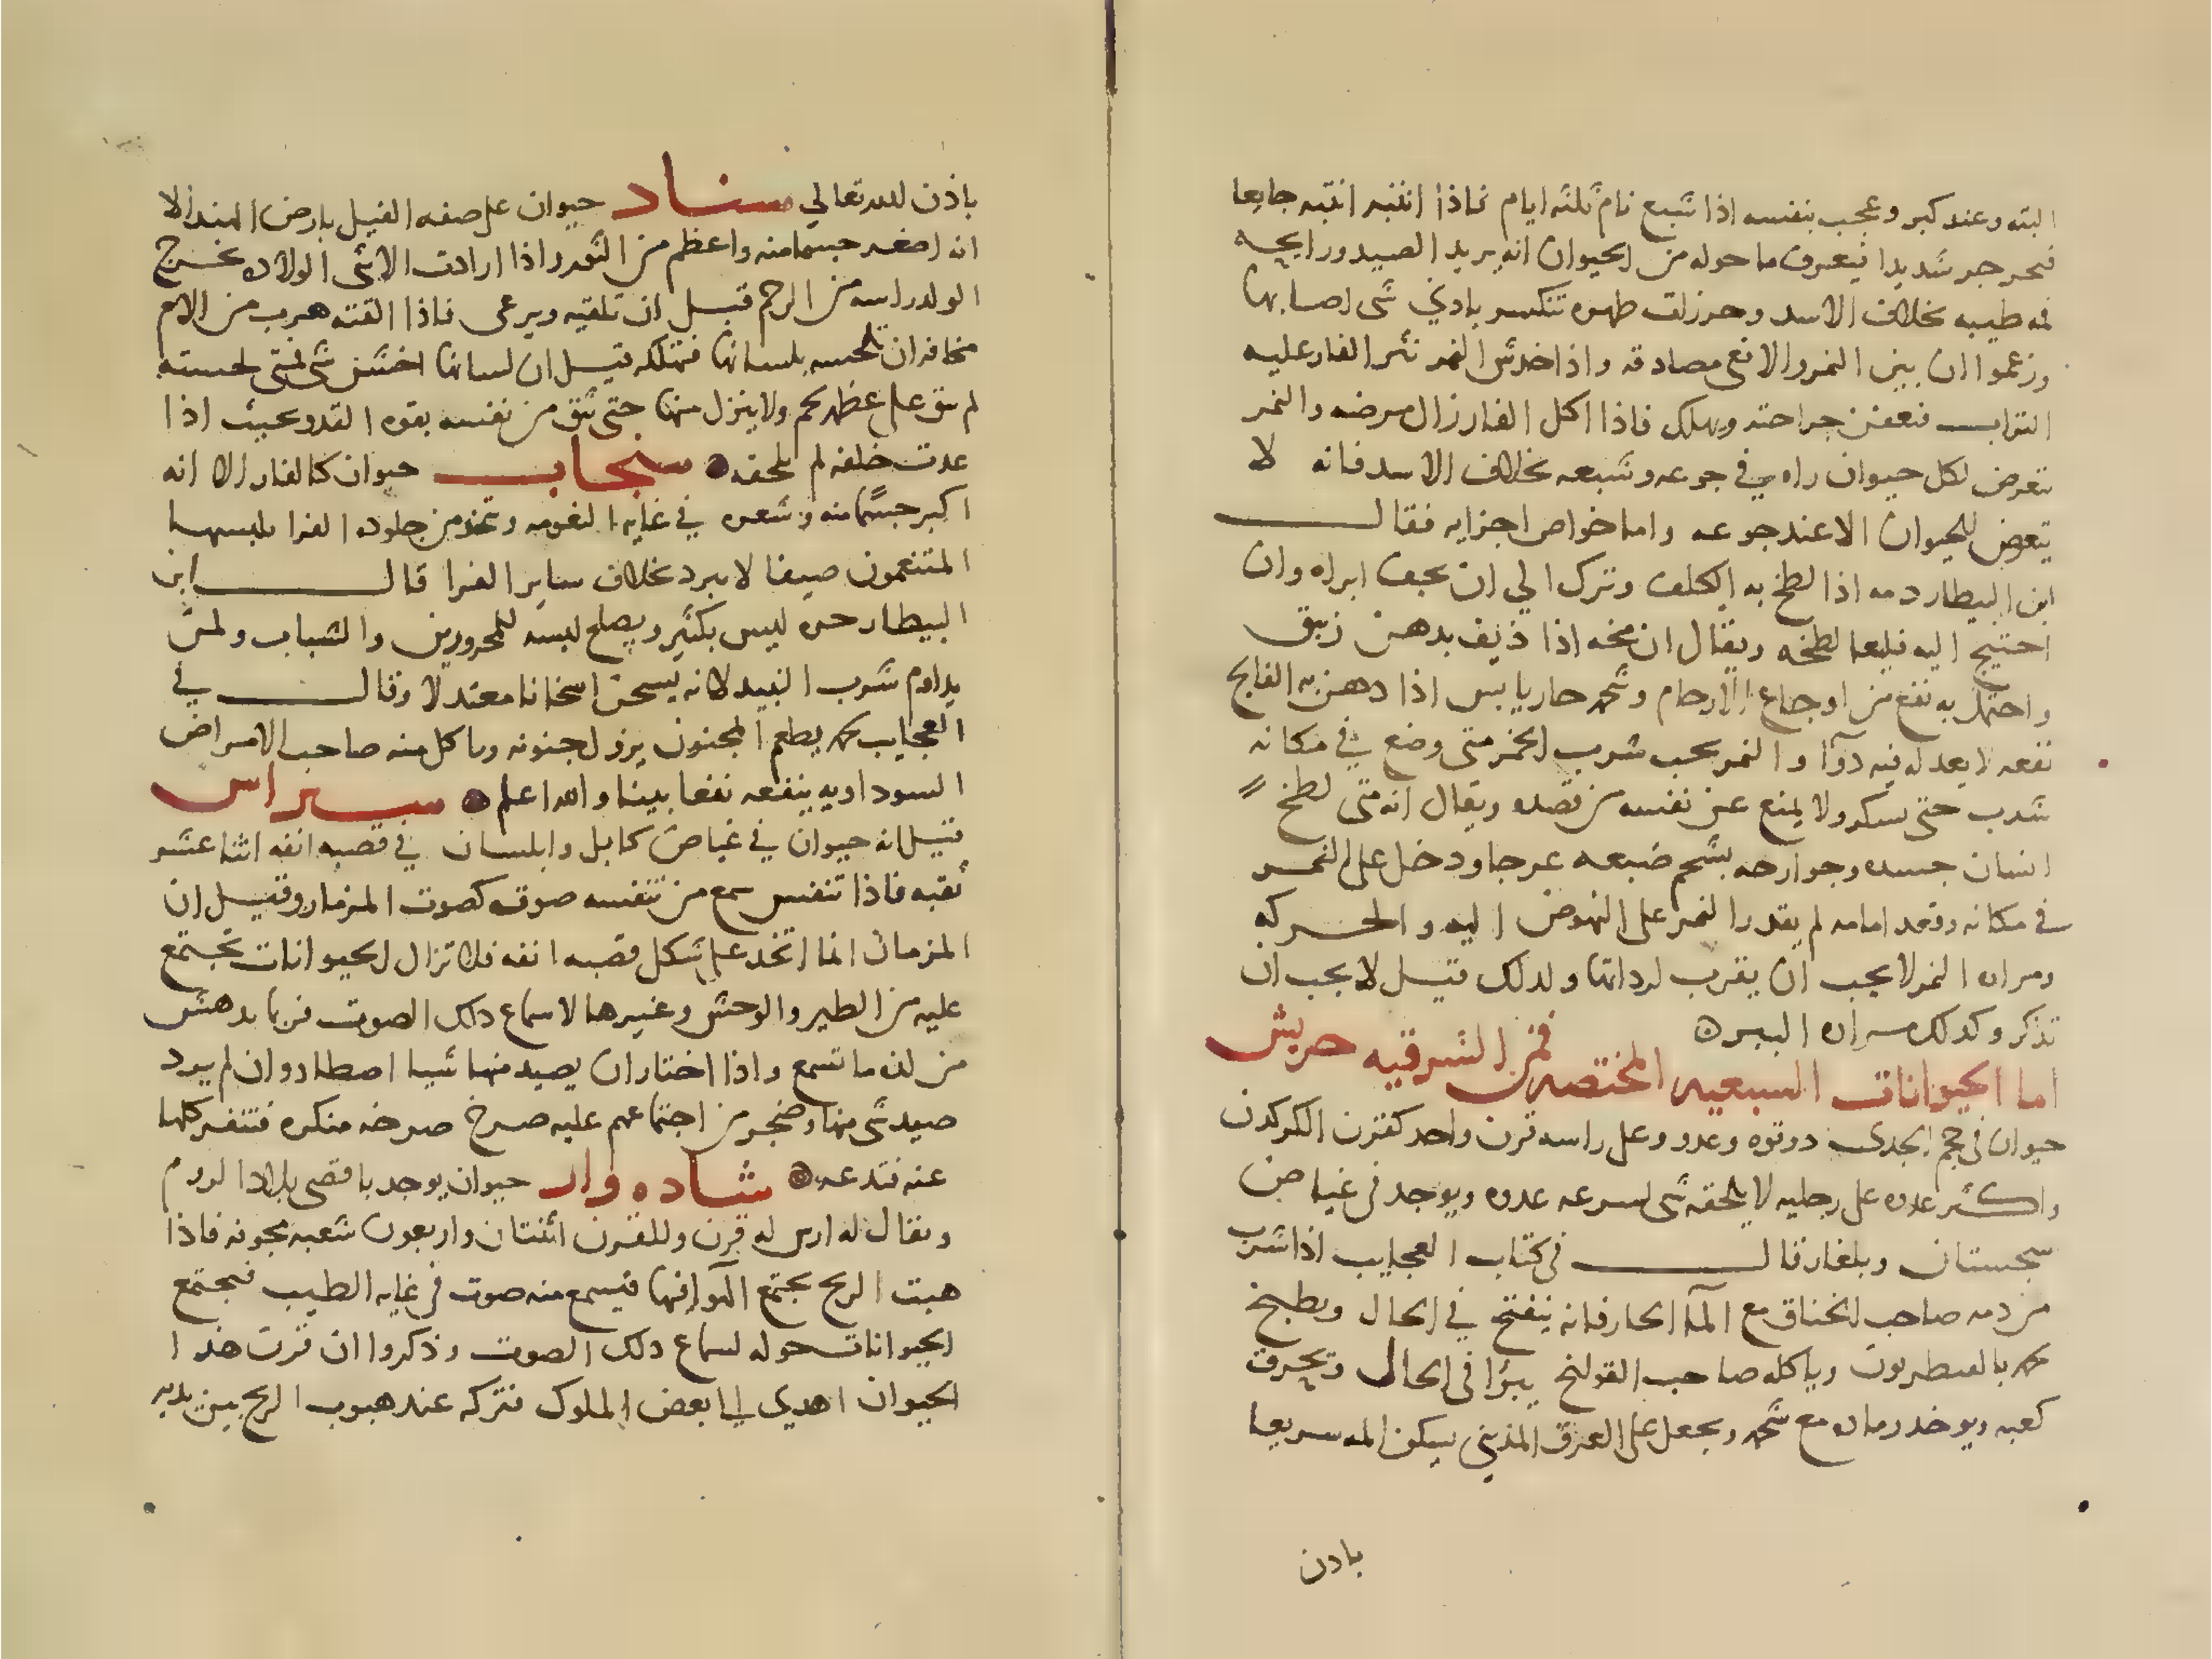 البته وعند كبر وعجب بنفسه اذا شبع نام ثلثه ايام فاذا انتبه انتبه جايعا
شديدا فيعرف ما حوله من الحيوان انه يريد الصيد ورايحه
فمه طيبه بخلاف الاسد وخرزات ظهره تنكسر بادني شى اصابها
وزعموا ان بين النمر والافعى مصادقه واذا خدش النمر نثر الفار عليه
التراب فتعفن جراحته ويهلك فاذا اكل الفار زال مرضه والنمر
تعرض لكل حيوان راه في جوعه وشبعه بخلاف الاسد فانه لا
يتعرض للحيوان الا عند جوعه واما خواص اجزايه فقال
ابن البيطار دمه اذا لطخ به الكلف وترك الي ان يجف ابراه وان
احتيج اليه فليعا لطخه ويقال ان مخه اذا ذيف بدهن زنبق
واحتمل به نفع من اوجاع الارحام وشحمه حار يابس اذا دهن به الفالج
نفعه لا يعدله فيه دوآ والنمر يحب شرب الخمر متى وضع في مكانه
شرب حتى سكر ولا يمنع عن نفسه من قصده ويقال انه متى لطخ
انسان جسده وجوارحه بشحم ضبعه عرجا ودخل على النمر
في مكانه وقعد امامه لم يقدر النمر على النهوض اليه والحركه
ومراره النمر لا يجب ان يقرب لرداتها ولذلك قيل لا يجب ان
تذكر وكذلك مراره الببر
اما الحيوانات السبعيه المختصه فمن الشرقيه حريش
حيوان فى حجم الجدى ذو قوه وعدو وعلى راسه قرن واحد كقرن الكركدن
واكثر عدوه على رجليه لا يلحقه شى لسرعه عدوه ويوجد فى غياض
سجستان وبلغار قال فى كتاب العجايب اذا شرب
من دمه صاحب الخناق مع المآ الحار فانه ينفتح في الحال ويطبخ
لحمه بالقنطريون وياكله صاحب القولنج يبرا فى الحال وتحرق
كعبه ويوخد رماده مع شحمه ويجعل على العرق المذيني يسكن المه سريعا
بادن
باذن الله تعالي سناد حيوان على صفه الفيل بارض الهند الا
انه اصغر جسما منه واعظم من الثور واذا ارادت الانثى الولاده يخرج
الولد راسه من الرحم قبل ان تلقيه ويرعى فاذا القته هرب من الام
مخافه ان تلحسه بلسانها فتهلكه قيل ان لسانها اخشن شى فمتى لحسته
لم تبق على عظمه لحم ولا ينزل منها حتى يثق من نفسه بقوه العدو بحيث اذا
عدت خلفه لم تلحقه سنجاب حيوان كالفار الا انه
اكبر جسما منه وشعره في غايه النعومه وتتخذ من جلوده الفرا يلبسها
المتنعمون صيفا لا تبرد بخلاف ساير الفرا قال ابن
البيطار حره ليس بكثير ويصلح لبسه للمحرورين والشباب ولمن
يداوم شرب النبيد لانه يسخن اسخانا معتدلا وقال في
العجايب لحمه يطعم المجنون يزول جنونه وياكل منه صاحب الامراض
السوداويه ينفعه نفعا بينا والله اعلم سيراس
قيل انه حيوان في غياض كابل وابلسان في قصبه انفه اثنا عشر
ثقبه فاذا تنفس سمع من تنفسه صوت كصوت المزمار وقيل ان
المزمان انما اتخد على شكل قصبه انفه فلا تزال الحيوانات تجتمع
عليه من الطير والوحش وغيرها لاسماع دلك الصوت فربما يدهش
من لذه ما تسمع واذا اختار ان يصيد منها شيا اصطاد وان لم يرد
صيد شى منها وضجر من اجتماعهم عليه صرخ صرخه منكره فتنفر كلها
عنه فتدعه شاده وار حيوان يوجد باقصى بلاد الروم
ويقال له ارس له قرن وللقرن اثنتان واربعون شعبه مجوفه فاذا
هبت الريح يجتمع الهوا فيها فيسمع منه صوت فى غايه الطيب فيجتمع
الحيوانات حوله لسماع دلك الصوت وذكروا ان قرن هذا
الحيوان اهدي الي بعض الملوك فتركه عند هبوب الريح بين يديه